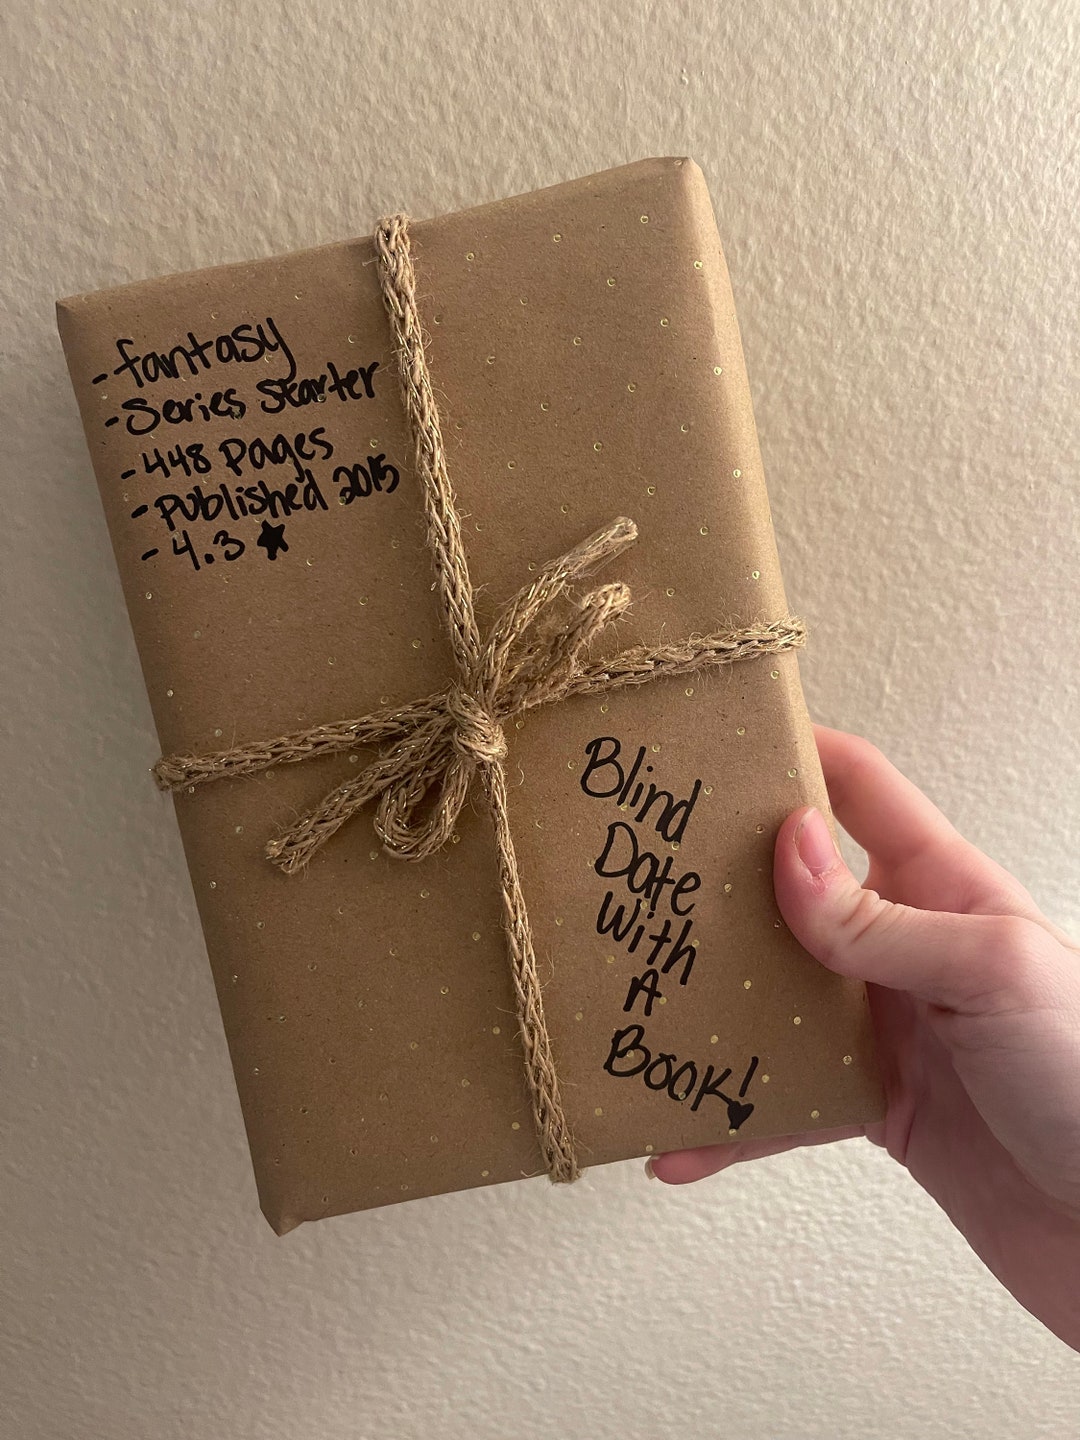 - fantasy
- Series Starter
- 448 Pages
- Published 2015
- 4.3 ★
Blind
Date
With
A
Book!